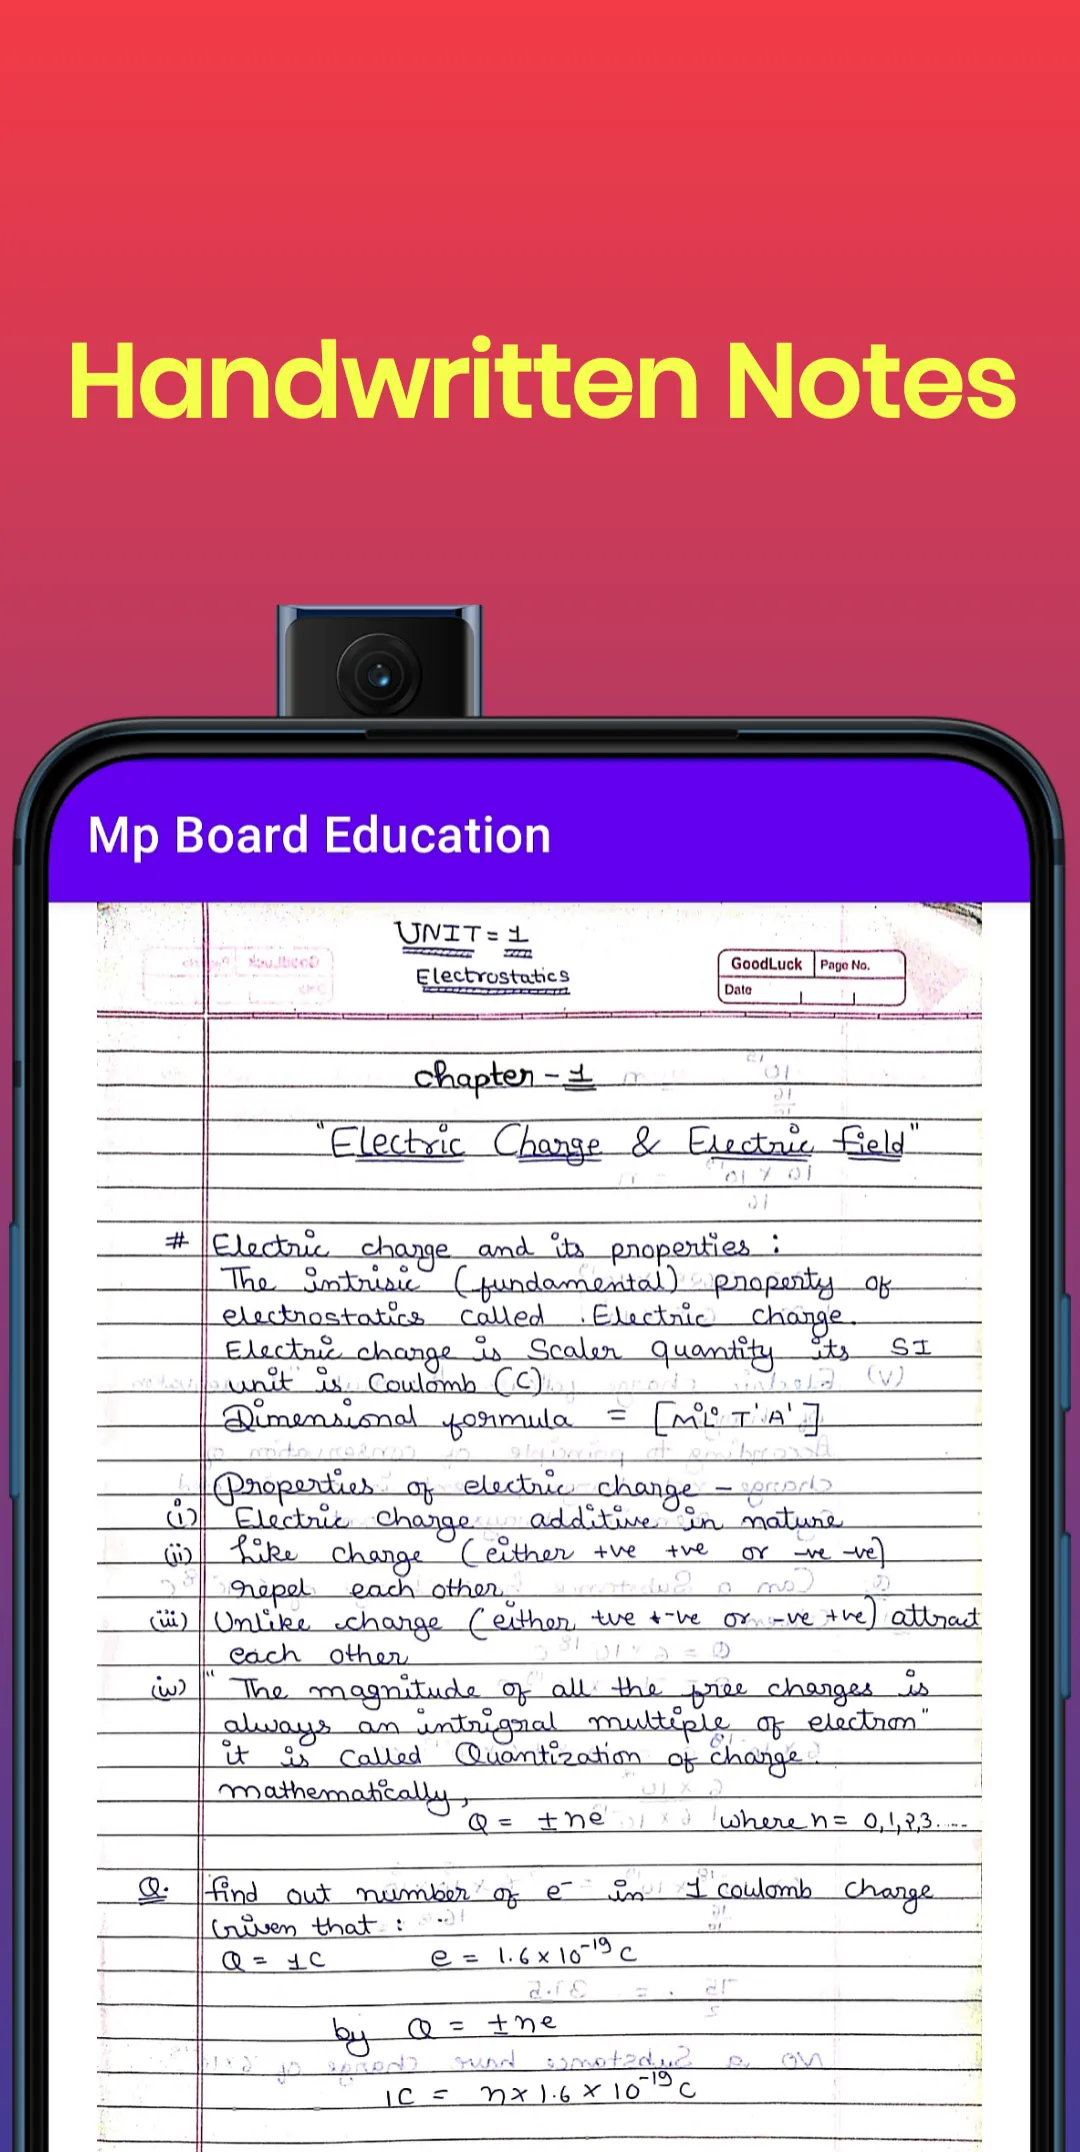 Handwritten Notes
Mp Board Education
UNIT = 1
Electrostatics
GoodLuck Page No.
Date
Chapter - 1
"Electric Charge & Electric Field"
# Electric charge and its properties :
The intrisic (fundamental) property of
electrostatics called Electric charge.
Electric charge is Scaler quantity its SI
unit is Coulomb (C)
Dimensional formula = [M⁰L⁰T¹A¹]
Properties of electric charge -
(i) Electric charge additive in nature
(ii) Like charge (either +ve +ve or -ve -ve)
repel each other
(iii) Unlike charge (either +ve & -ve or -ve +ve) attract
each other
(iv) "The magnitude of all the free charges is
always an intrigral multiple of electron"
it is called Quantization of charge.
mathematically,
Q = ±ne where n = 0,1,2,3.....
Q. find out number of e⁻ in 1 coulomb charge
Given that :
Q = 1C e = 1.6 x 10⁻¹⁹ C
by Q = ±ne
1C = n x 1.6 x 10⁻¹⁹ C